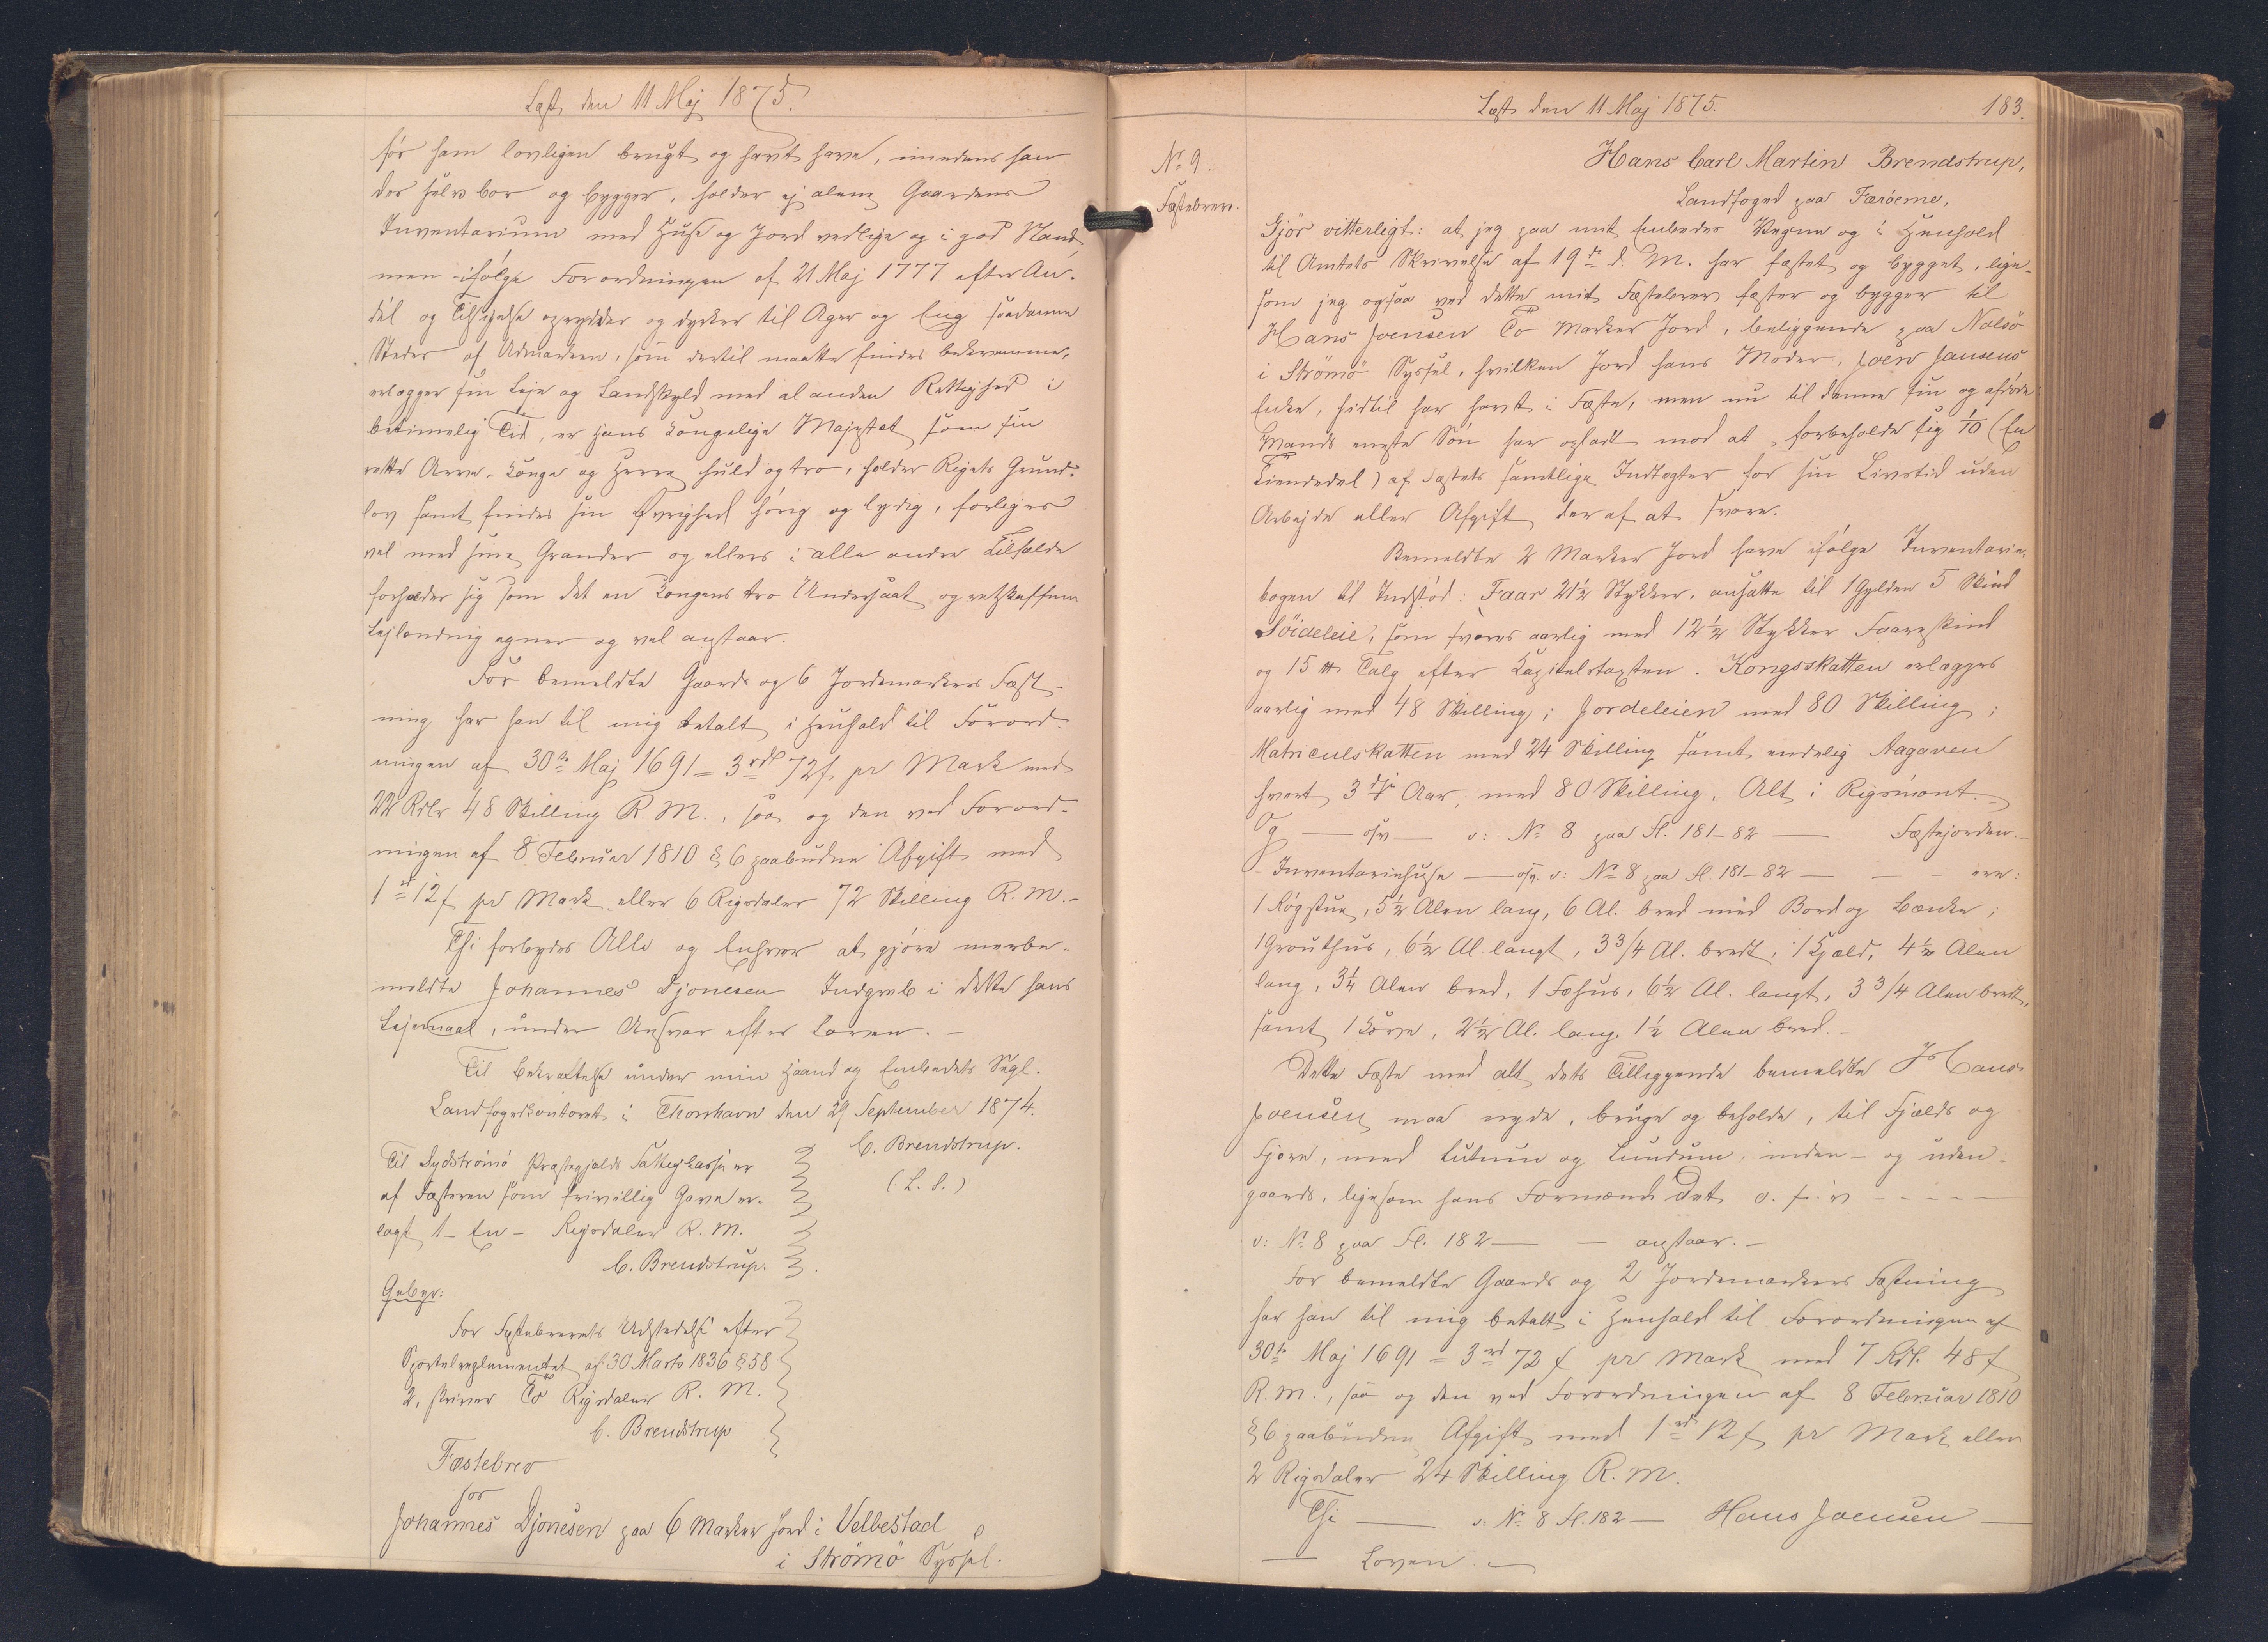 Læst den 11 Maj 1875.
før ham lovligen brugt og havt have, imedens han
der selv bor og bygger, holder ej alene Gaardens
Inventarium med Huse og Jord vedlige og i god Stand,
men ifølge Forordningen af 21 Maj 1777 efter An-
del og Tilsigelse oprydder og dyrker til Ager og Eng saadanne
Steder af Udmarken, som dertil maatte findes bekvemme,
erlægger sin Leje og Landskyld med al anden Rettighed i
betimelig Tid, er Hans Kongelige Majestæt som sin
rette Arve-Konge og Herre huld og tro, holder Rigets Grund-
lov samt findes sin Øvrighed hørig og lydig, forliges
vel med sine Grander og ellers i alle andre Tilfælde
forholder sig som det en Kongens tro Undersaat og retskaffen
Lejlending egner og vel anstaar.
For bemeldte Gaards og 6 Jordemarkers Fæst-
ning har han til mig betalt i Henhold til Forord-
ningen af 30te Maj 1691 = 3 rdl 72 ß pr Mark med
22 Rdlr 48 Skilling R. M., saa og den ved Forord-
ningen af 8 Februar 1810 § 6 paabudne Afgift med
1 rd 12 ß pr Mark eller 6 Rigsdaler 72 Skilling R. M. -
Thi forbydes Alle og Enhver at gjøre merbe-
meldte Johannes Djonesen Indgreb i dette hans
Lejemaal, under Ansvar efter Loven. -
Til Bekræftelse under min Haand og Embedets Segl.
Landfogedkontoret i Thorshavn den 29 September 1874.
C. Brendstrup.
(L. S.)
Til Sydstrømø Præstegjælds Fattigkasse er
af Fæsteren som frivillig Gave er-
lagt 1 - En - Rigsdaler R. M.
C. Brendstrup.
Gebyr:
For Fæstebrevets Udstedelse efter
Sportelreglementet af 30 Marts 1836 § 58
2, skriver To Rigsdaler R. M.
C. Brendstrup
Fæstebrev
for
Johannes Djonesen paa 6 Marker Jord i Velbestad
i Strömö Syssel.
Læst den 11 Maj 1875.
183.
No 9.
Fæstebrev.
Hans Carl Martin Brendstrup,
Landfoged paa Færöerne,
Gjör vitterligt: at jeg paa mit Embedes Vegne og i Henhold
til Amtets Skrivelse af 19de d. M. har fæstet og bygget, lige-
som jeg ogsaa ved dette mit Fæstebrev fæster og bygger til
Hans Joensen To Marker Jord, beliggende paa Nolsö
i Strömö Syssel, hvilken Jord hans Moder, Joen Hansens
Enke, hidtil har havt i Fæste, men nu til denne sin og afdøde
Mands eneste Søn har opladt mod at forbeholde sig 1/10 (En
Tiendedel) af Fæstets samtlige Indtægter for sin Livstid uden
Arbejde eller Afgift deraf at svare.
Bemeldte 2 Marker Jord have ifølge Inventarie-
bogen til Indstöd: Faar 21½ Stykker, ansatte til 1 Gylden 5 Skind
Söideleie, som svares aarlig med 12½ Stykker Faareskind
og 15 ℔ Talg efter Kapitelstaxten. Kongsskatten erlægges
aarlig med 48 Skilling; Jordeleien med 80 Skilling;
Matriculskatten med 24 Skilling samt endelig Aagaven
hvert 3die Aar, med 80 Skilling, Alt i Rigsmønt. -
Og — osv — v: No 8 paa Fl. 181-82 — Fæstejorden. -
- Inventariehuse — osv. v: No 8 paa Fl. 181-82 — - - ere:
1 Røgstue, 5½ Alen lang, 6 Al. bred med Bord og Bænke;
1 Grouthus, 6½ Al. langt, 3¾ Al. bredt, 1 Hjeld, 4½ Alen
lang, 3¼ Alen bred, 1 Fæhus, 6½ Al. langt, 3¾ Alen bredt,
samt 1 Sörn, 2½ Al. lang, 1½ Alen bred. -
Dette Fæste med alt dets Tilliggende bemeldte Hans
Joensen maa nyde, bruge og beholde, til Fjelds og
Fjære, med Lutum og Lundum, inden- og uden-
gaards, ligesom hans Formænd det o. s. v - - - -
v: No 8 paa Fl. 182 — — anstaar. -
For bemeldte Gaards og 2 Jordemarkers Fæstning
har han til mig betalt i Henhold til Forordningen af
30te Maj 1691 = 3 rd 72 ß pr Mark med 7 Rdl. 48 ß
R. M., saa og den ved Forordningen af 8 Februar 1810
§ 6 paabudne Afgift med 1 rd 12 ß pr Mark eller
2 Rigsdaler 24 Skilling R. M.
Thi — v: No 8 Fl. 182 — Hans Joensen —
— Loven. —